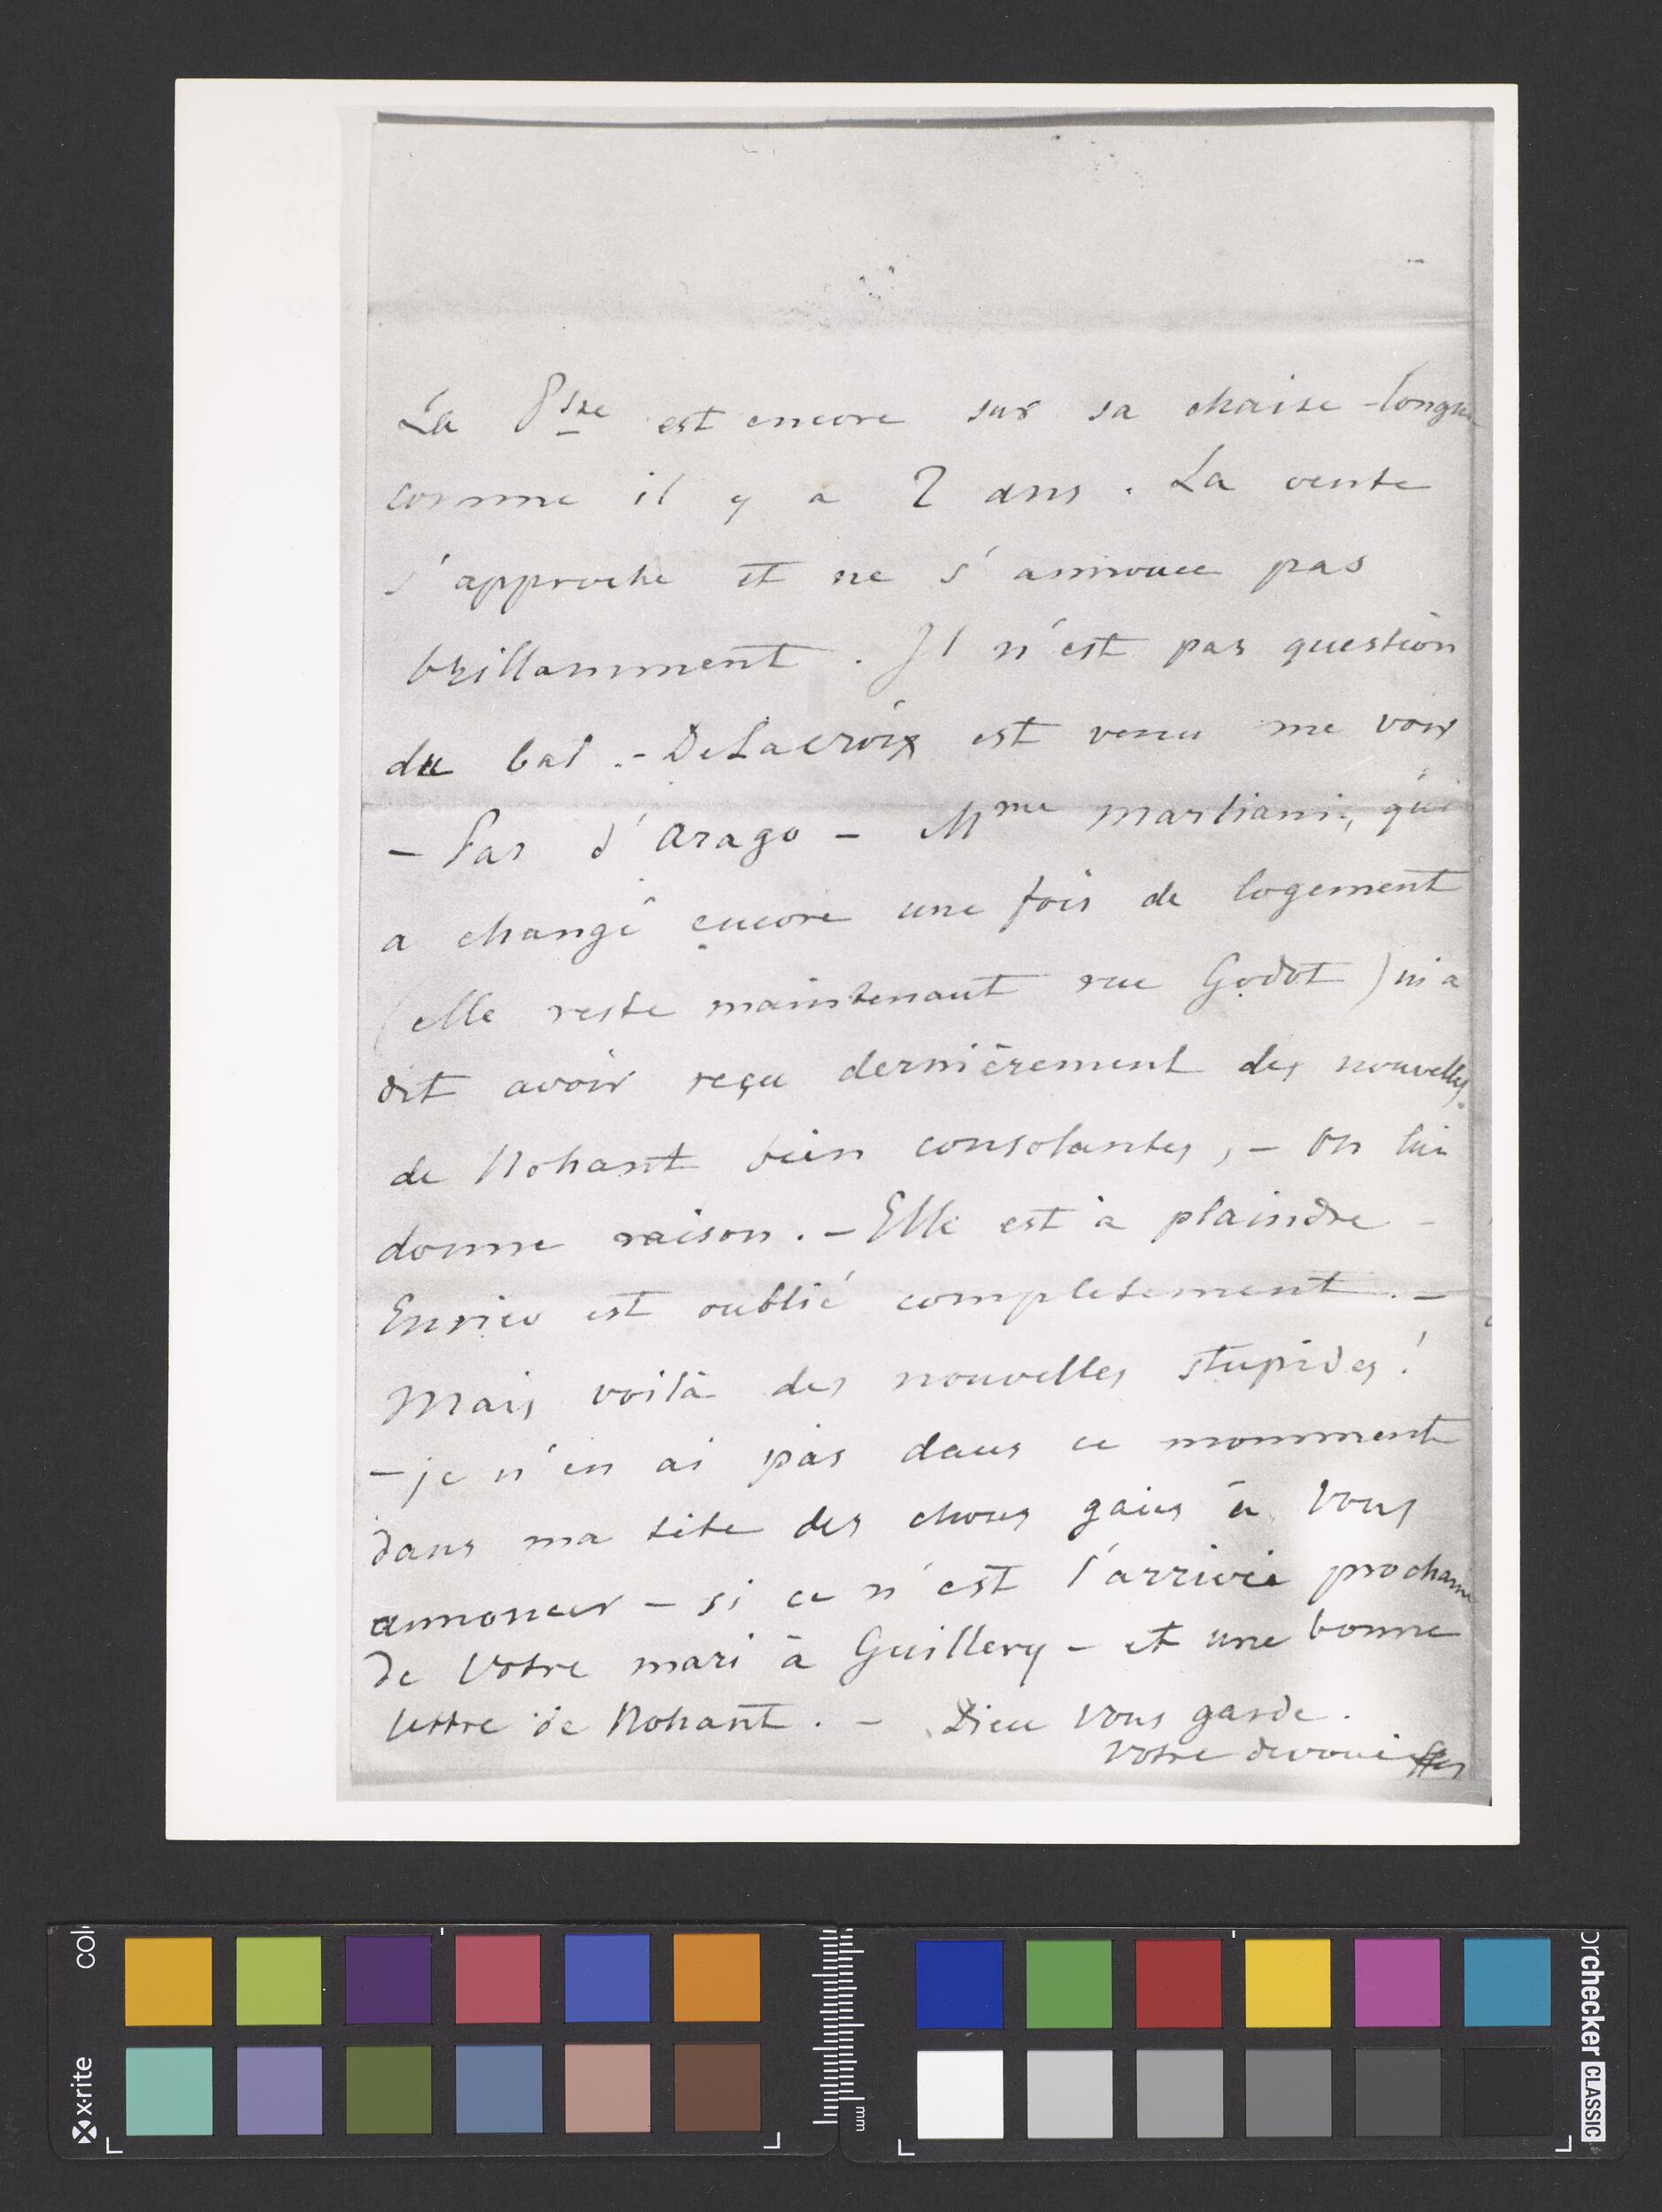 La Psse est encore sur sa chaise-longue
comme il y a 2 ans. La vente
s'approche et ne s'annonce pas
brillamment. Il n'est pas question
du bal.- DeLacroix est venu me voir
- Pas d'Arago - Mme Marliani, qui
a changé encore une fois de logement
(elle reste maintenant rue Godot) m'a
dit avoir reçu dernièrement des nouvelles
de Nohant bien consolantes, - On lui
donne raison. - Elle est à plaindre -
Enrico est oublié completement. -
Mais voilà des nouvelles stupides!
- je n'en ai pas dans ce momment
dans ma tête des choses gaies à Vous
annoncer - si ce n'est l'arrivée prochaine
de Votre mari à Guillery - et une bonne
lettre de Nohant. - Dieu Vous garde.
Votre devoué
col
x-rite
mm
orchecker CLASSIC